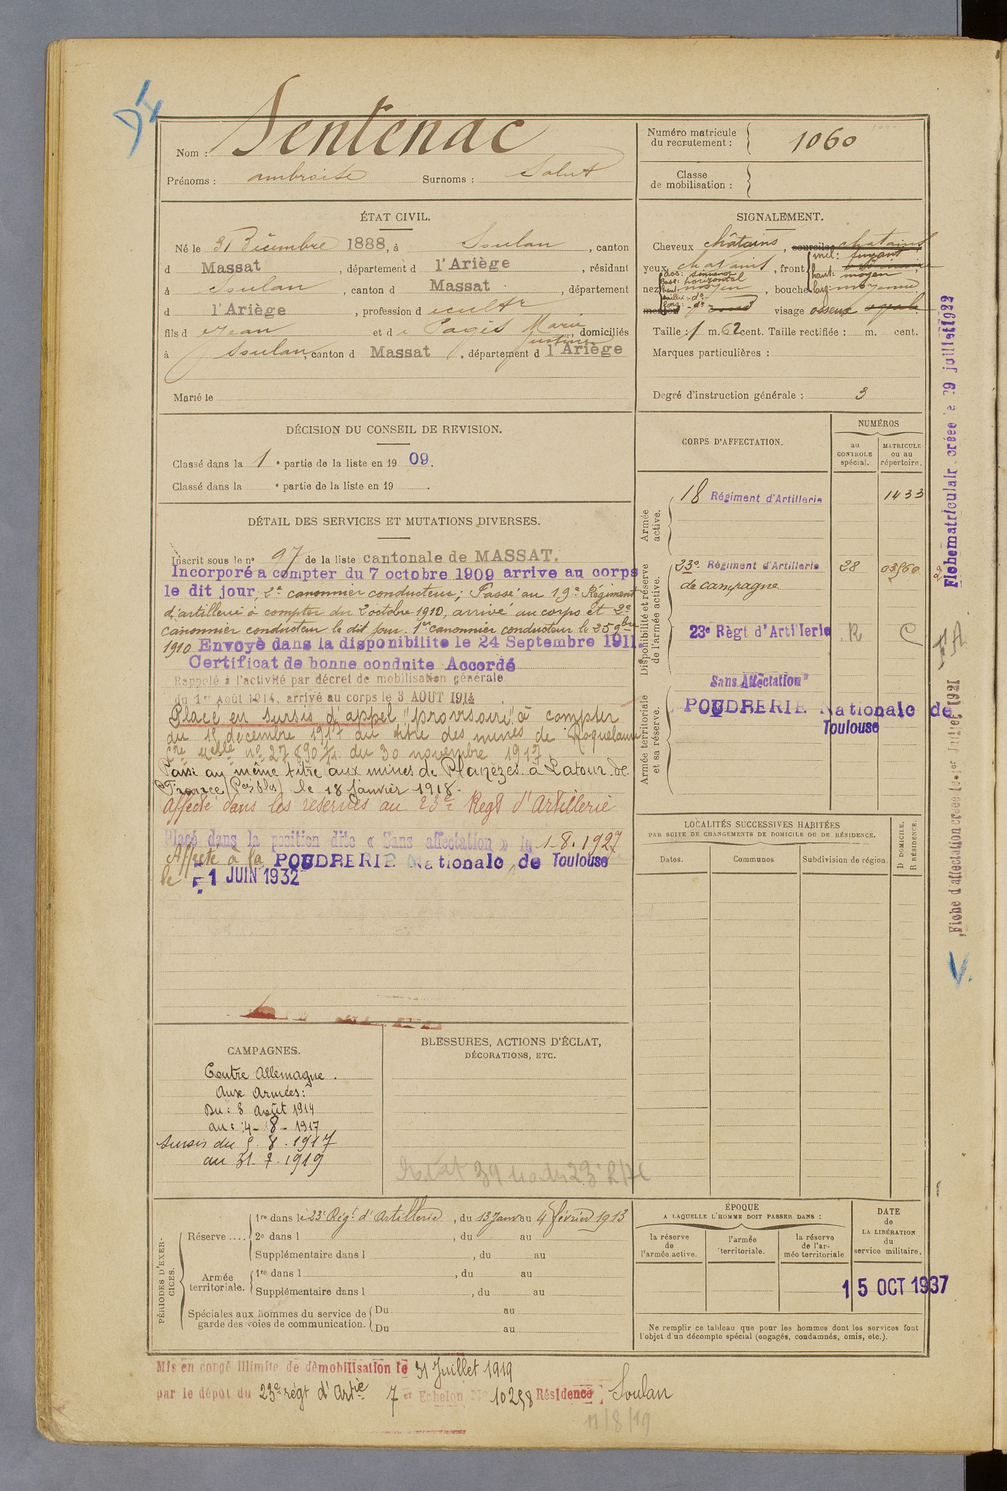 Nom : Sentenac
Prénoms : ambroise Surnoms :
Numéro matricule du recrutement : 1060
Classe de mobilisation :
ÉTAT CIVIL.
Né le 3 Décembre 1888, à Soulan, canton
d Massat, département d l'Ariège, résidant
à Soulan, canton d Massat, département
d l'Ariège, profession d cultr
fils d Jean et d e Pagès Marie domiciliés
à Soulan canton d Massat, département d l'Ariège
Marié le
SIGNALEMENT.
Cheveux châtains, sourcils chatains
yeux chatains, front incl: fuyant
haut: moyen
nez dos: base: horizontal
haut: moyen, bouche lar: moyenne
menton visage osseux
Taille : 1 m. 62 cent. Taille rectifiée : m. cent.
Marques particulières :
Degré d'instruction générale : 3
DÉCISION DU CONSEIL DE REVISION.
Classé dans la 1 e partie de la liste en 19 09.
Classé dans la e partie de la liste en 19 .
DÉTAIL DES SERVICES ET MUTATIONS DIVERSES.
Inscrit sous le n° 97 de la liste cantonale de MASSAT.
Incorporé a compter du 7 octobre 1909 arrive au corps
le dit jour, 2e canonnier conducteur; Passé au 19e Régiment
d'artillerie à compter du 2 octobre 1910, arrivé au corps et 2e
canonnier conducteur le dit jour. 1er canonnier conducteur le 25 9bre
1910 Envoyé dans la disponibilite le 24 Septembre 1911
Certificat de bonne conduite Accordé
Rappelé à l'activité par décret de mobilisation générale
du 1er Août 1914, arrivé au corps le 3 AOUT 1914
Placé en sursis d'appel "provisoire" à compter
du 18 décembre 1917 au titre des mines de Roquelaure
nelle n° 27890 du 30 novembre 1917
Passé au même titre aux mines de Planèzes à Latour de
France le 18 janvier 1918.
Affecté dans les réserves au 23e Regt d'Artillerie
Placé dans la position dite « Sans affectation » le 1-8-1927
Affecté à la POUDRERIE Nationale de Toulouse
le 1 JUIN 1932
CORPS D'AFFECTATION.
NUMÉROS
au CONTROLE spécial.
MATRICULE ou au répertoire.
Armée active.
18 Régiment d'Artillerie 1433
Disponibilité et réserve de l'armée active.
23e Régiment d'Artillerie 28
de campagne
23e Règt d'Artillerie R C
Armée territoriale et sa réserve.
Sans Affectation
POUDRERIE Nationale de
Toulouse
LOCALITÉS SUCCESSIVES HABITÉES
PAR SUITE DE CHANGEMENTS DE DOMICILE OU DE RÉSIDENCE.
Dates. Communes Subdivision de région.
D DOMICILE.
R RÉSIDENCE.
CAMPAGNES.
Contre Allemagne.
Aux Armées:
Du: 3 Août 1914
au: 4-8-1917
Sursis du 5.8.1917
au 31.7.1919
BLESSURES, ACTIONS D'ÉCLAT,
DÉCORATIONS, ETC.
PÉRIODES D'EXERCICES.
Réserve.... 1re dans le 23e Régt d'Artillerie, du 13 Janv au 4 février 1913
2e dans l , du au
Supplémentaire dans l , du au
Armée territoriale. 1re dans l , du au
Supplémentaire dans l , du au
Spéciales aux hommes du service de garde des voies de communication. Du au
Du au
ÉPOQUE
A LAQUELLE L'HOMME DOIT PASSER DANS :
la réserve de l'armée active.
l'armée territoriale.
la réserve de l'armée territoriale
DATE DE LA LIBÉRATION du service militaire.
15 OCT 1937
Ne remplir ce tableau que pour les hommes dont les services font
l'objet d'un décompte spécial (engagés, condamnés, omis, etc.).
Mis en congé illimité de démobilisation le 31 Juillet 1919
par le dépôt du 23e régt d'Artie 7e Echelon N° 10258 Résidence : Soulan
11/8/19
Fiche matriculair. créée le 29 juillet 1922
Fiche d'affectation créée le 1er Juillet 1921